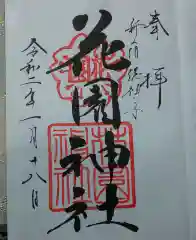 奉拝
新宿総鎮守
花園神社
令和二年一月十八日